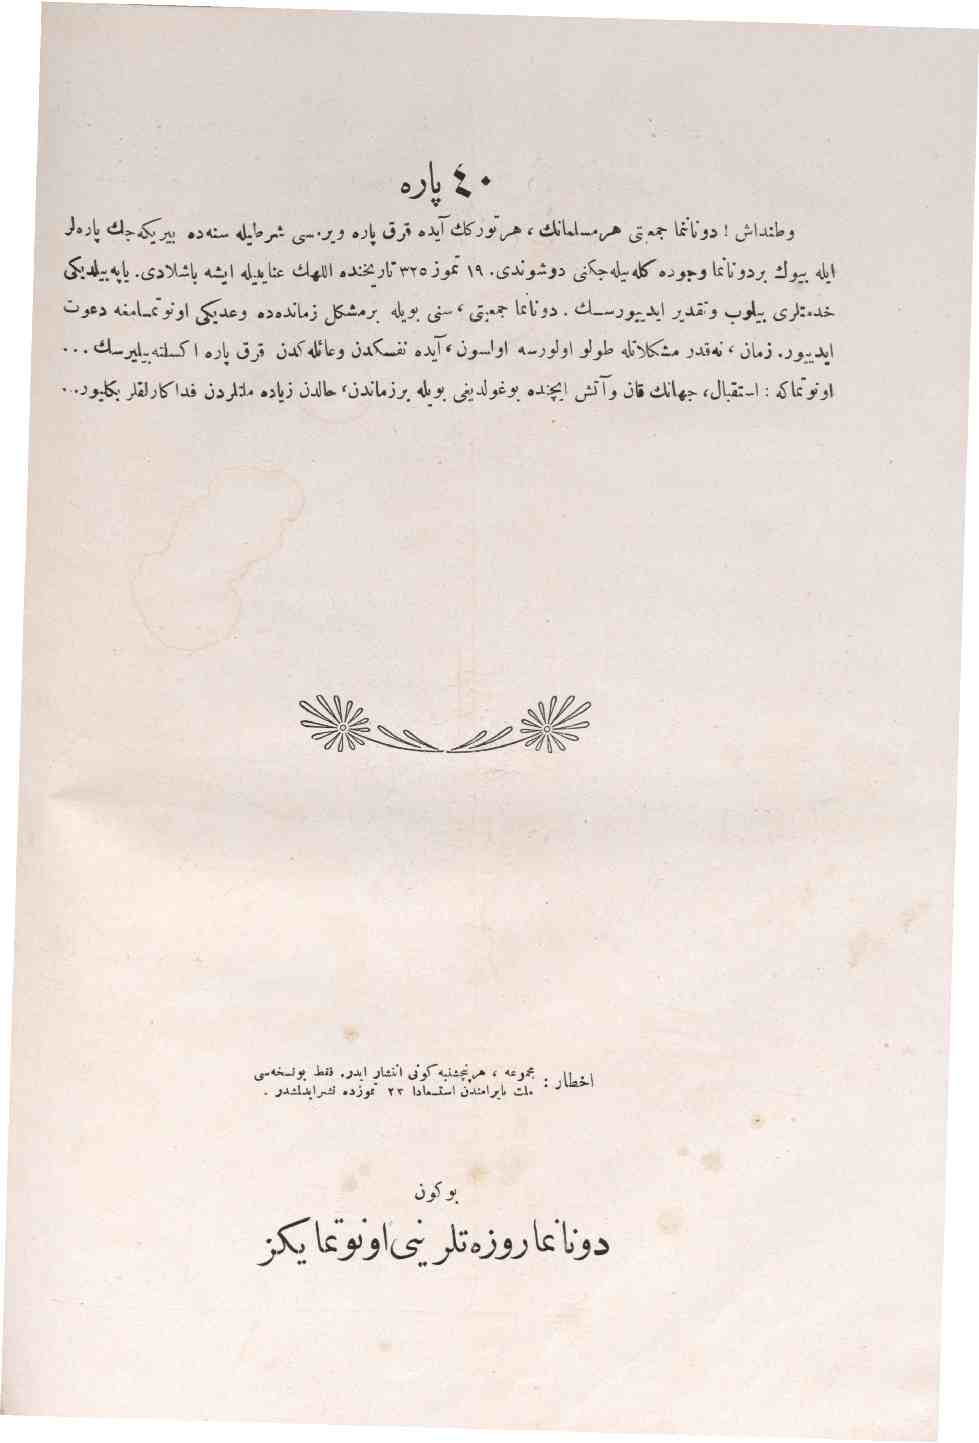 ٤٠ پاره
وطنداش ! دونانما جمعیتی هرمسلمانك ، هرتوركك آیده قرق پاره ویرمسی شرطیله سنه‌ده بیریكه‌جك پاره‌لر
ایله بیوك بردونانما وجوده كله‌بیله‌جكنی دوشوندی. ١٩ تموز ٣٢٥ تاریخنده اللهك عنایتیله ایشه باشلادی. یاپه‌بیلدیكی
خدمتلری بیلوب وتقدیر ایدییورسـك . دونانما جمعیتی ، سنی بویله برمشكل زمانده‌ده وعدیكی اونوتمامغه دعوت
ایدییور. زمان ، نه‌قدر مشكلاتله طولو اولورسه اولسون ، آیده نفسكدن وعائله‌كدن قرق پاره اكسلته‌بیلیرسك ...
اونوتماكه : استقبال ، جهانك قان وآتش ایچنده بوغولدیغی بویله برزماندن، حالدن زیاده ملتلردن فداكارلقلر بكلیور..
اخطار :
مجموعه ، هرپنچشنبه كونی انتشار ایدر. فقط بونسخه‌سی
ملت بایرامندن استـعادا ٢٣ تموزده نشرایدلمشدر .
بوكون
دونانما روزه‌تلرینی اونوتمایكز